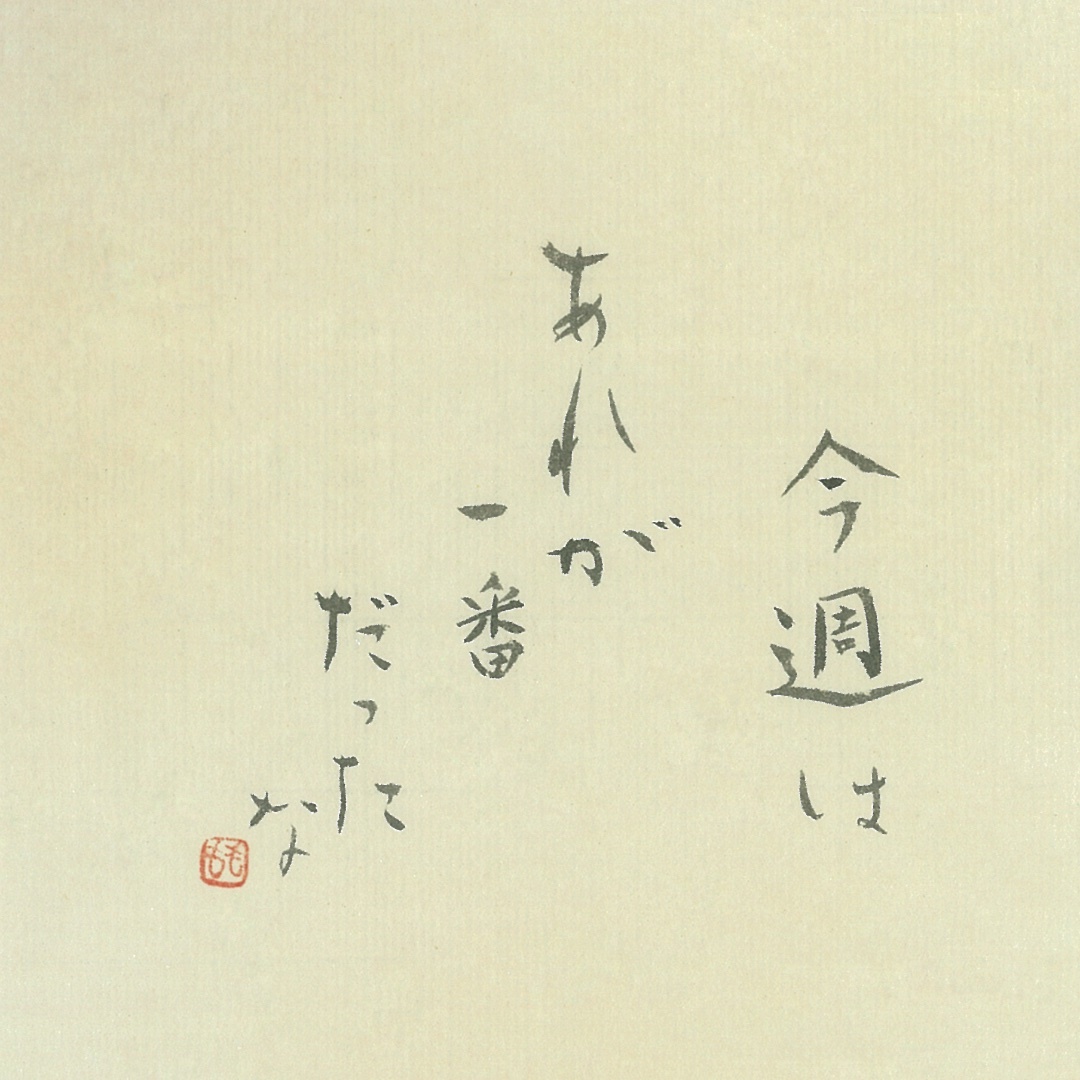 今週は
あれが
一番
だった
な